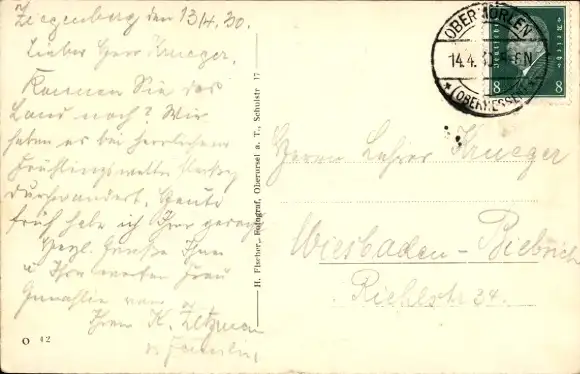 Ziegenberg den 13/4. 30.
Lieber Herr Krueger.
Kennen Sie das
Land noch? Wir
haben es bei herrlichem
Frühlingswetter
durchwandert. Heute
früh habe ich Ihrer
Herzl. Grüße Ihnen
u Ihrer werten Frau
Gemahlin von
Ihrem K.
u Familie,
O 42
H. Fischer, Fotograf, Oberursel a. T., Schulstr 17
OBER MÖRLEN
14.4.30
(OBERHESSEN)
Deutsches Reich
8 8
Herrn Lehrer Krueger
Wiesbaden-Biebrich
Riehlstr 34.